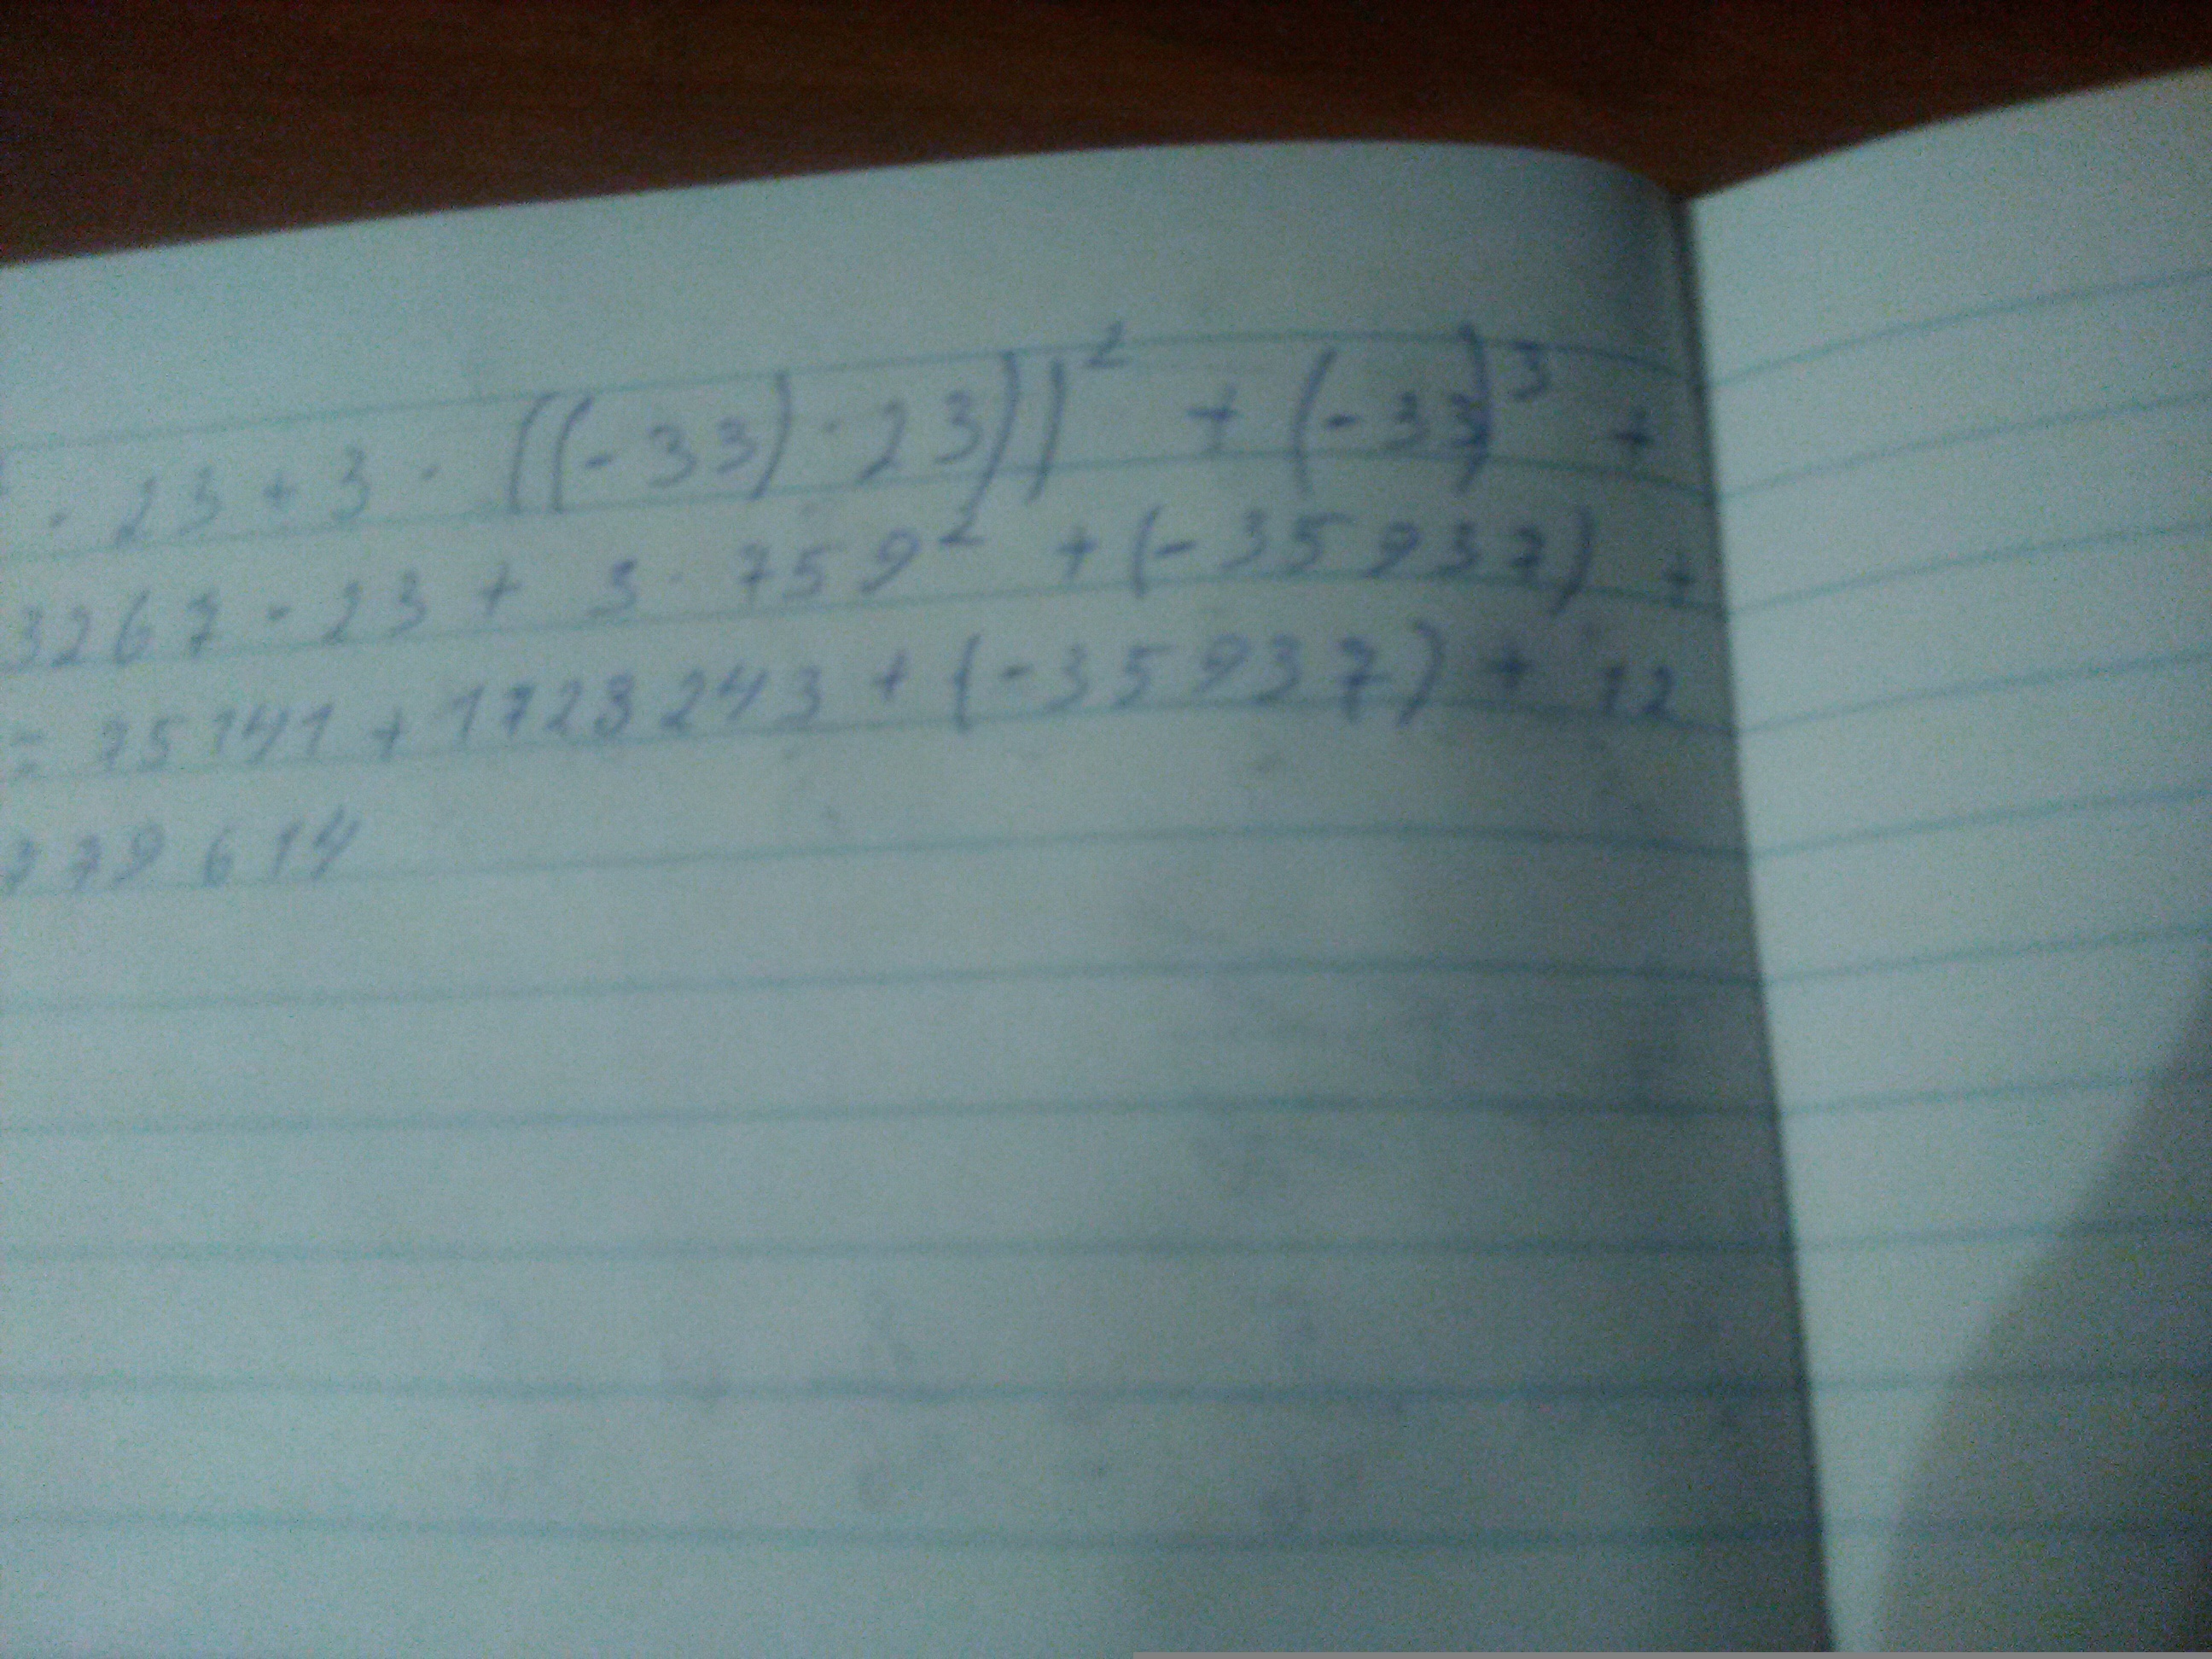 · 23 + 3 · ((-33) · 23))² + (-33)³ +
3267 · 23 + 3 · 759² + (-35937) +
= 75141 + 1728243 + (-35937) + 12
779614